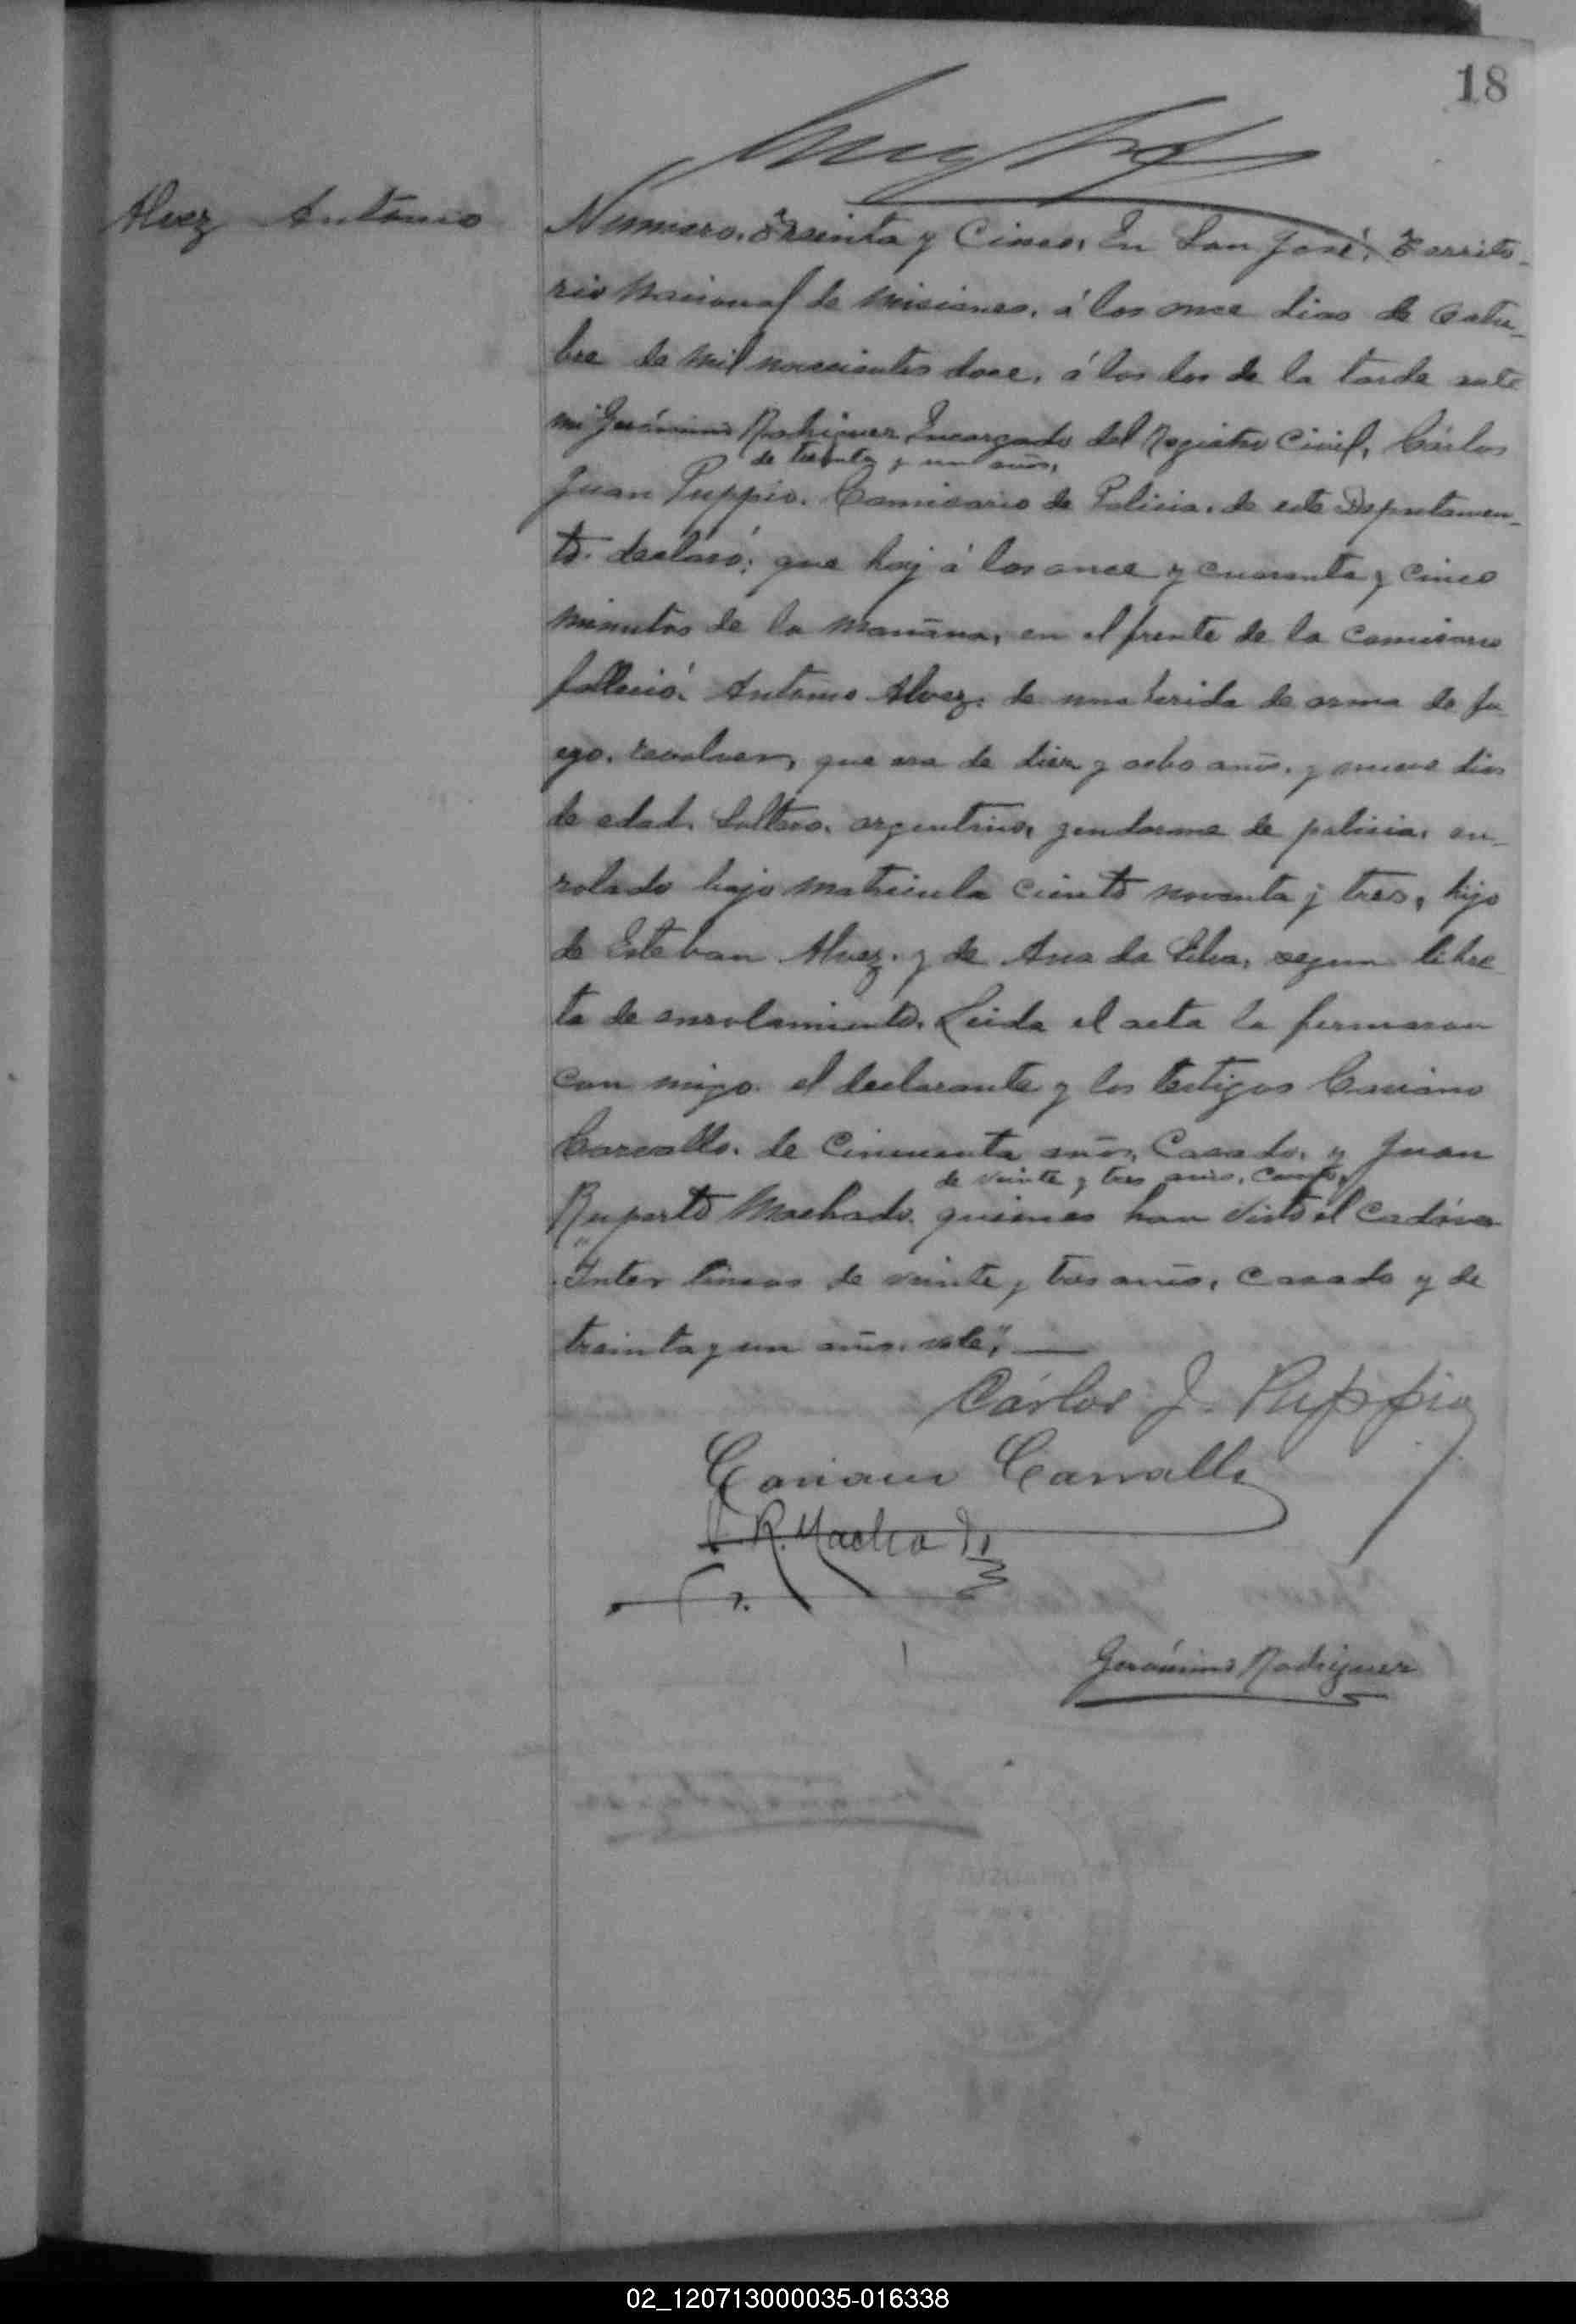 18
Alvez Antonio
Número. Treinta y Cinco. En San José, Territo-
rio Nacional de Misiones, á los once dias de Octu-
bre de mil novecientos doce, á las dos de la tarde ante
mi Gerónimo Rodriguez Encargado del Registro Civil, Cárlos
de treinta y un años,
Juan Puppio. Comisario de Policia, de este Departamen-
to. declaró: que hoy á las once y cuarenta y cinco
minutos de la mañana, en el frente de la comisaria
falleció. Antonio Alvez. de una herida de arma de fu-
ego. revolver, que era de diez y ocho años. y nueve dias
de edad. Soltero. argentino, gendarme de policia, en-
rolado bajo matricula ciento noventa y tres, hijo
de Esteban Alvez. y de Ana da Silva, segun libre
ta de enrolamiento. Leida el acta la firmaron
con migo. el declarante y los testigos
Carvallo. de Cincuenta años, Casado, y Juan
de veinte y tres años, casado,
Ruperto Machado. quienes han visto el Cadáver
"Inter lineas de veinte y tres años, casado y de
treinta y un años. vale". —
Cárlos J. Puppio
Carvallo
J. R. Machado
Gerónimo Rodriguez
02_120713000035-016338